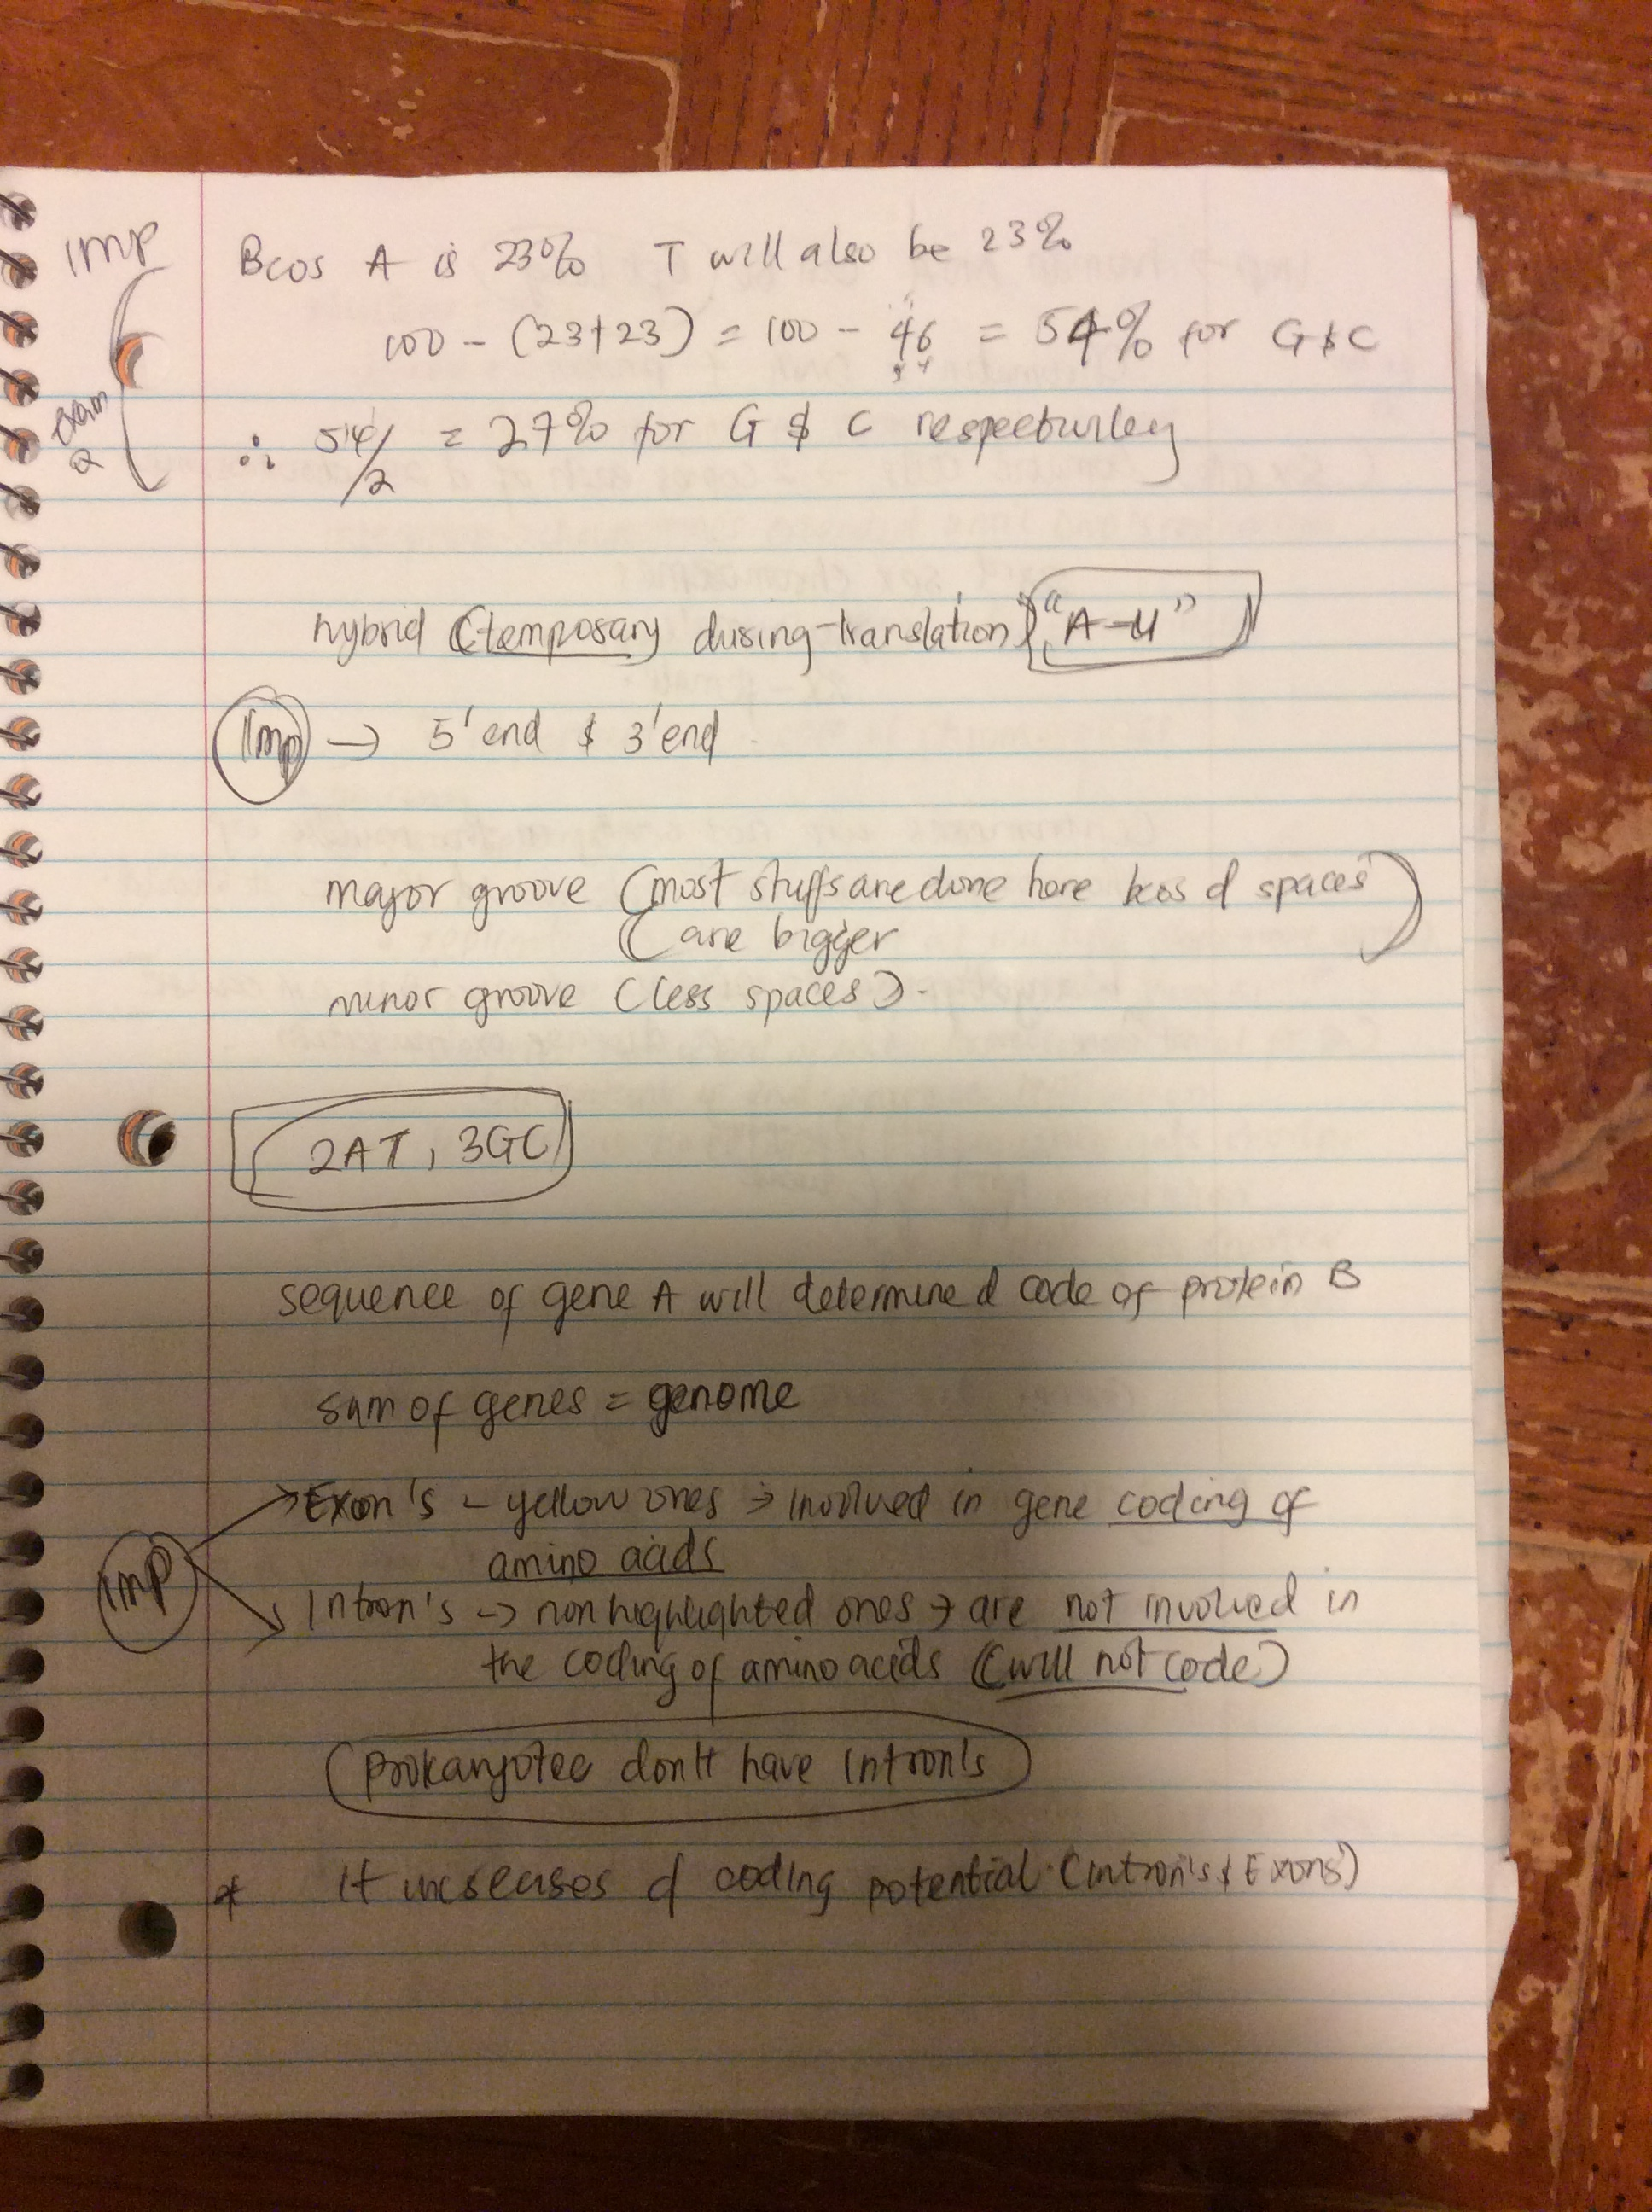 IMP
Bcos A is 23% T will also be 23%
100 - (23+23) = 100 - 46 = 54% for G & C
Exam
Q
∴ 54/2 = 27% for G & C respectivley
hybrid (temporary during translation) "A-U"
Imp → 5' end & 3' end
major groove (most stuffs are done here bcos d spaces
are bigger)
minor groove (less spaces).
2AT, 3GC
sequence of gene A will determine d code of protein B
sum of genes = genome
Imp
Exon's - yellow ones → involved in gene coding of
amino acids
Intron's → non highlighted ones → are not involved in
the coding of amino acids (will not code)
prokaryotee don't have Intron's
* It increases d coding potential (intron's & Exons)